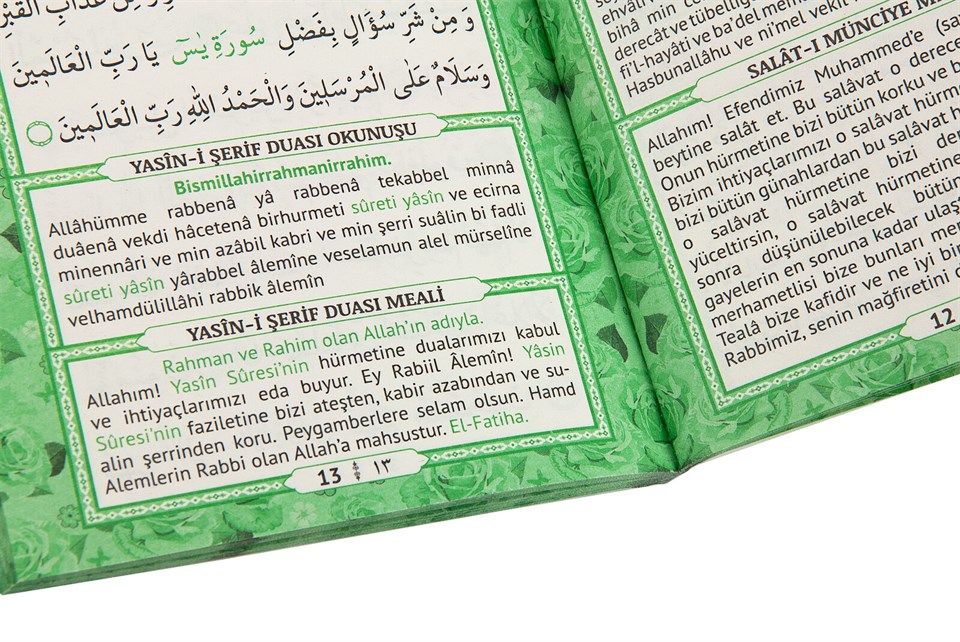 وَمِنْ شَرِّ سُؤَالٍ بِفَضْلِ سُورَةِ يٰسٓ يَا رَبِّ الْعَالَمِينَ
وَسَلَامٌ عَلَى الْمُرْسَلِينَ وَالْحَمْدُ لِلّٰهِ رَبِّ الْعَالَمِينَ
YASÎN-İ ŞERİF DUASI OKUNUŞU
Bismillahirrahmanirrahim.
Allâhümme rabbenâ yâ rabbenâ tekabbel minnâ
duâenâ vekdi hâcetenâ birhurmeti sûreti yâsîn ve ecirna
minennâri ve min azâbil kabri ve min şerri suâlin bi fadli
sûreti yâsîn yârabbel âlemîne veselamun alel mürselîne
velhamdülillâhi rabbik âlemîn
YASÎN-İ ŞERİF DUASI MEALİ
Rahman ve Rahim olan Allah'ın adıyla.
Allahım! Yasîn Sûresi'nin hürmetine dualarımızı kabul
ve ihtiyaçlarımızı eda buyur. Ey Rabiil Âlemîn! Yâsin
Sûresi'nin faziletine bizi ateşten, kabir azabından ve su-
alin şerrinden koru. Peygamberlere selam olsun. Hamd
Alemlerin Rabbi olan Allah'a mahsustur. El-Fatiha.
13 ١٣
bihâ min
derecât ve tübelliğ
fi'l-hayâti ve ba'del mem
Hasbunallâhu ve ni'mel vekîl
SALÂT-I MÜNCİYE
Allahım! Efendimiz Muhammed'e (sa
beytine salât et. Bu salâvat o derece
Onun hürmetine bizi bütün korku ve b
Bizim ihtiyaçlarımızı o salâvat hürm
bizi bütün günahlardan bu salâvat h
o salâvat hürmetine bizi de
yüceltirsin, o salâvat hürmetine
sonra düşünülebilecek bütür
gayelerin en sonuna kadar ulaş
merhametlisi bize bunları me
Tealâ bize kafidir ve ne iyi bi
Rabbimiz, senin mağfiretini
12